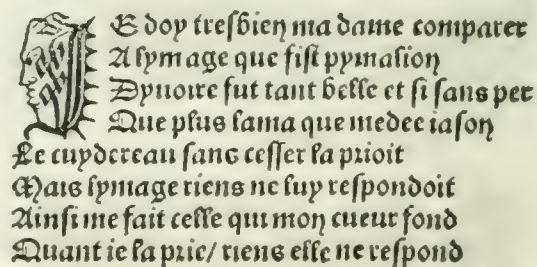 IE doy tresbien ma dame comparer
A lymage que fist pymalion
Dyuoire fut tant belle et si sans per
Que plus lama que medee iason
Le cuydereau sans cesser la prioit
Mais lymage riens ne luy respondoit
Ainsi me fait celle qui mon cueur fond
Quant ie la prie/ riens elle ne respond